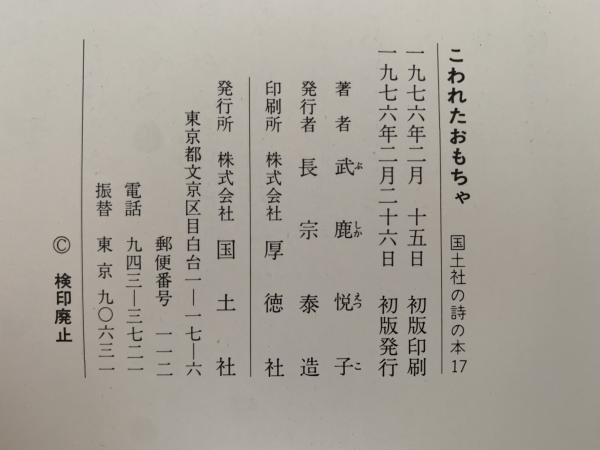 こわれたおもちゃ 国土社の詩の本17
一九七六年二月 十五日 初版印刷
一九七六年二月二十六日 初版発行
著者 武鹿悦子
ぶしかえつこ
発行者 長宗泰造
印刷所 株式会社 厚徳社
発行所 株式会社 国土社
東京都文京区目白台一―一七―六
郵便番号 一一二
電話 九四三―三七二一
振替 東京 九〇六三一
© 検印廃止